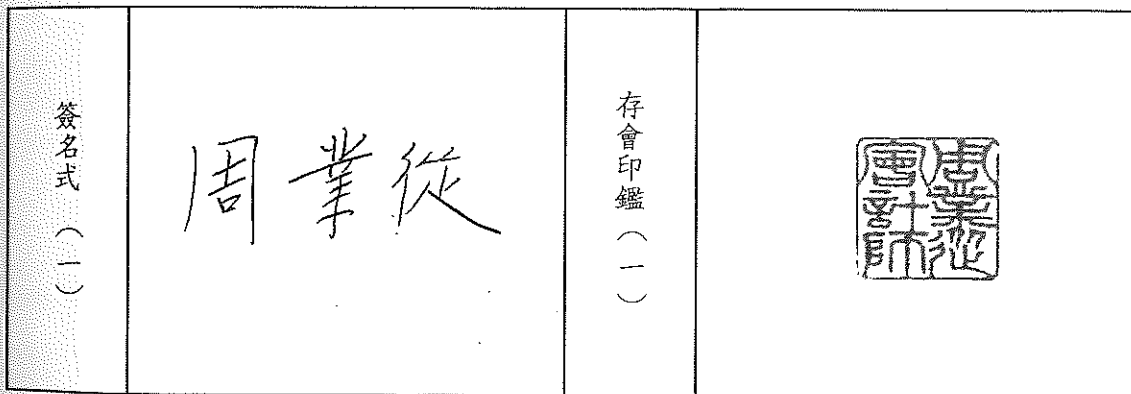 簽名式（一）
周業從
存會印鑑（一）
周業從
會計師